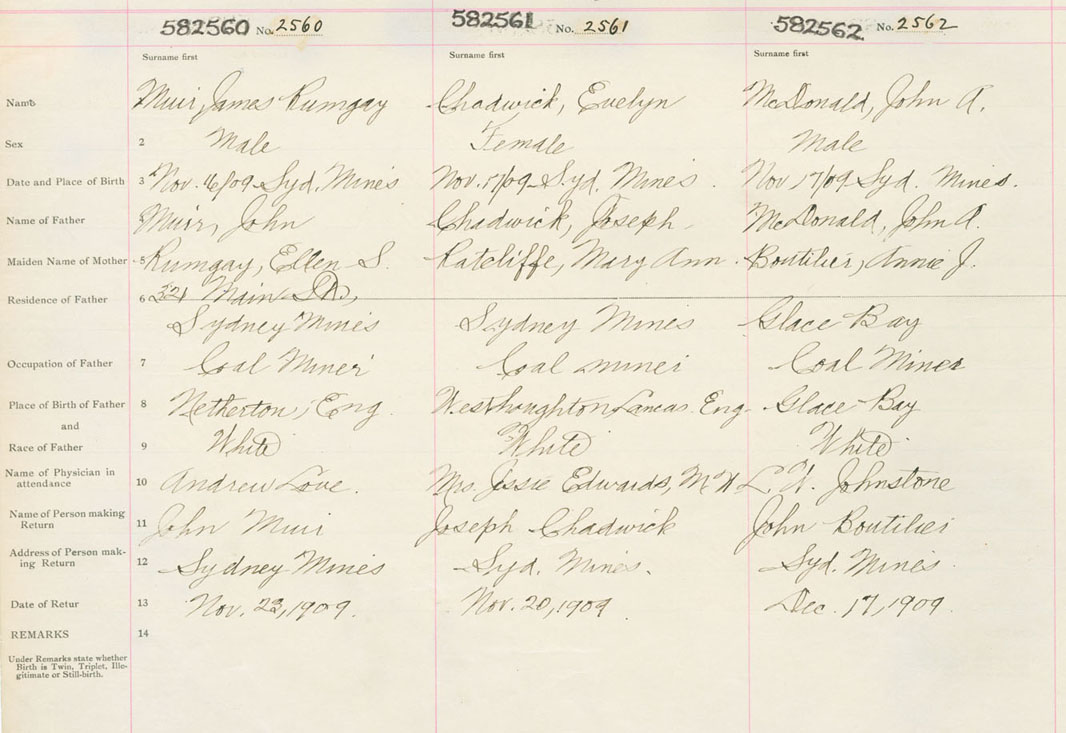 582560 No. 2560 582561 No. 2561 582562 No. 2562
Surname first Surname first Surname first
Name Muir, James Rumgay Chadwick, Evelyn McDonald, John A.
Sex 2 Male Female Male
Date and Place of Birth 3 Nov. 16/09 Syd. Mines Nov. 17/09 Syd. Mines. Nov 17/09 Syd. Mines.
Name of Father Muir, John Chadwick, Joseph McDonald, John A.
Maiden Name of Mother 5 Rumgay, Ellen S. Ratcliffe, Mary Ann. Boutilier, Annie J.
Residence of Father 6 221 Main
Sydney Mines Sydney Mines Glace Bay
Occupation of Father 7 Coal Miner Coal miner Coal Miner
Place of Birth of Father 8 Netherton, Eng. Westhoughton Lancas. Eng. Glace Bay
and
Race of Father 9 White White White
Name of Physician in
attendance 10 Andrew Love. Mrs. Jessie Edwards, L. W. Johnstone
Name of Person making
Return 11 John Muir Joseph Chadwick John Boutilier
Address of Person mak-
ing Return 12 Sydney Mines Syd. Mines. Syd. Mines
Date of Retur 13 Nov. 23, 1909. Nov. 20, 1909 Dec. 17, 1909.
REMARKS 14
Under Remarks state whether
Birth is Twin, Triplet, Ille-
gitimate or Still-birth.